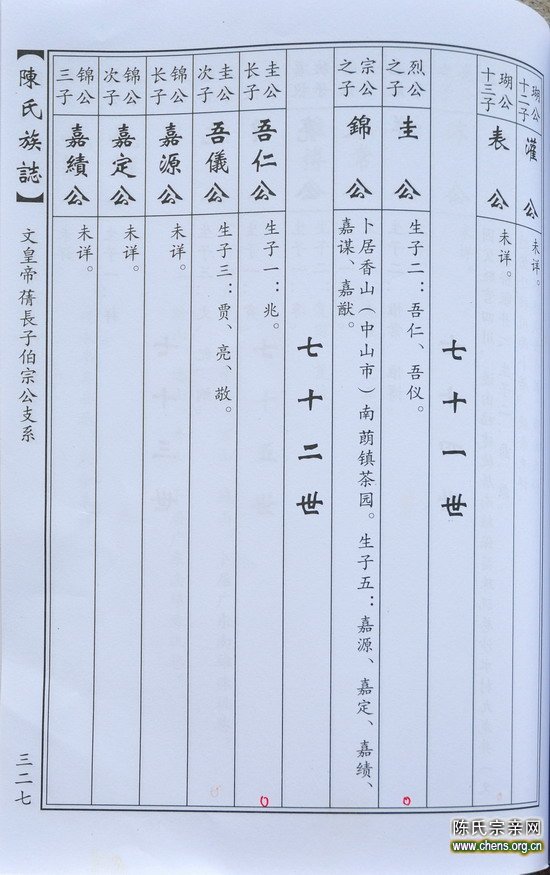 瑚公十二子
灌公
未详。
瑚公十三子
表公
未详。
七十一世
烈公之子
圭公
生子二：吾仁、吾仪。
宗公之子
錦公
卜居香山（中山市）南蓢镇茶园。生子五：嘉源、嘉定、嘉绩、
嘉谋、嘉猷。
七十二世
圭公长子
吾仁公
生子一：兆。
圭公次子
吾儀公
生子三：贾、亮、敬。
锦公长子
嘉源公
未详。
锦公次子
嘉定公
未详。
锦公三子
嘉績公
未详。
【陳氏族誌】
文皇帝蒨長子伯宗公支系
三二七
陈氏宗亲网
www.chens.org.cn